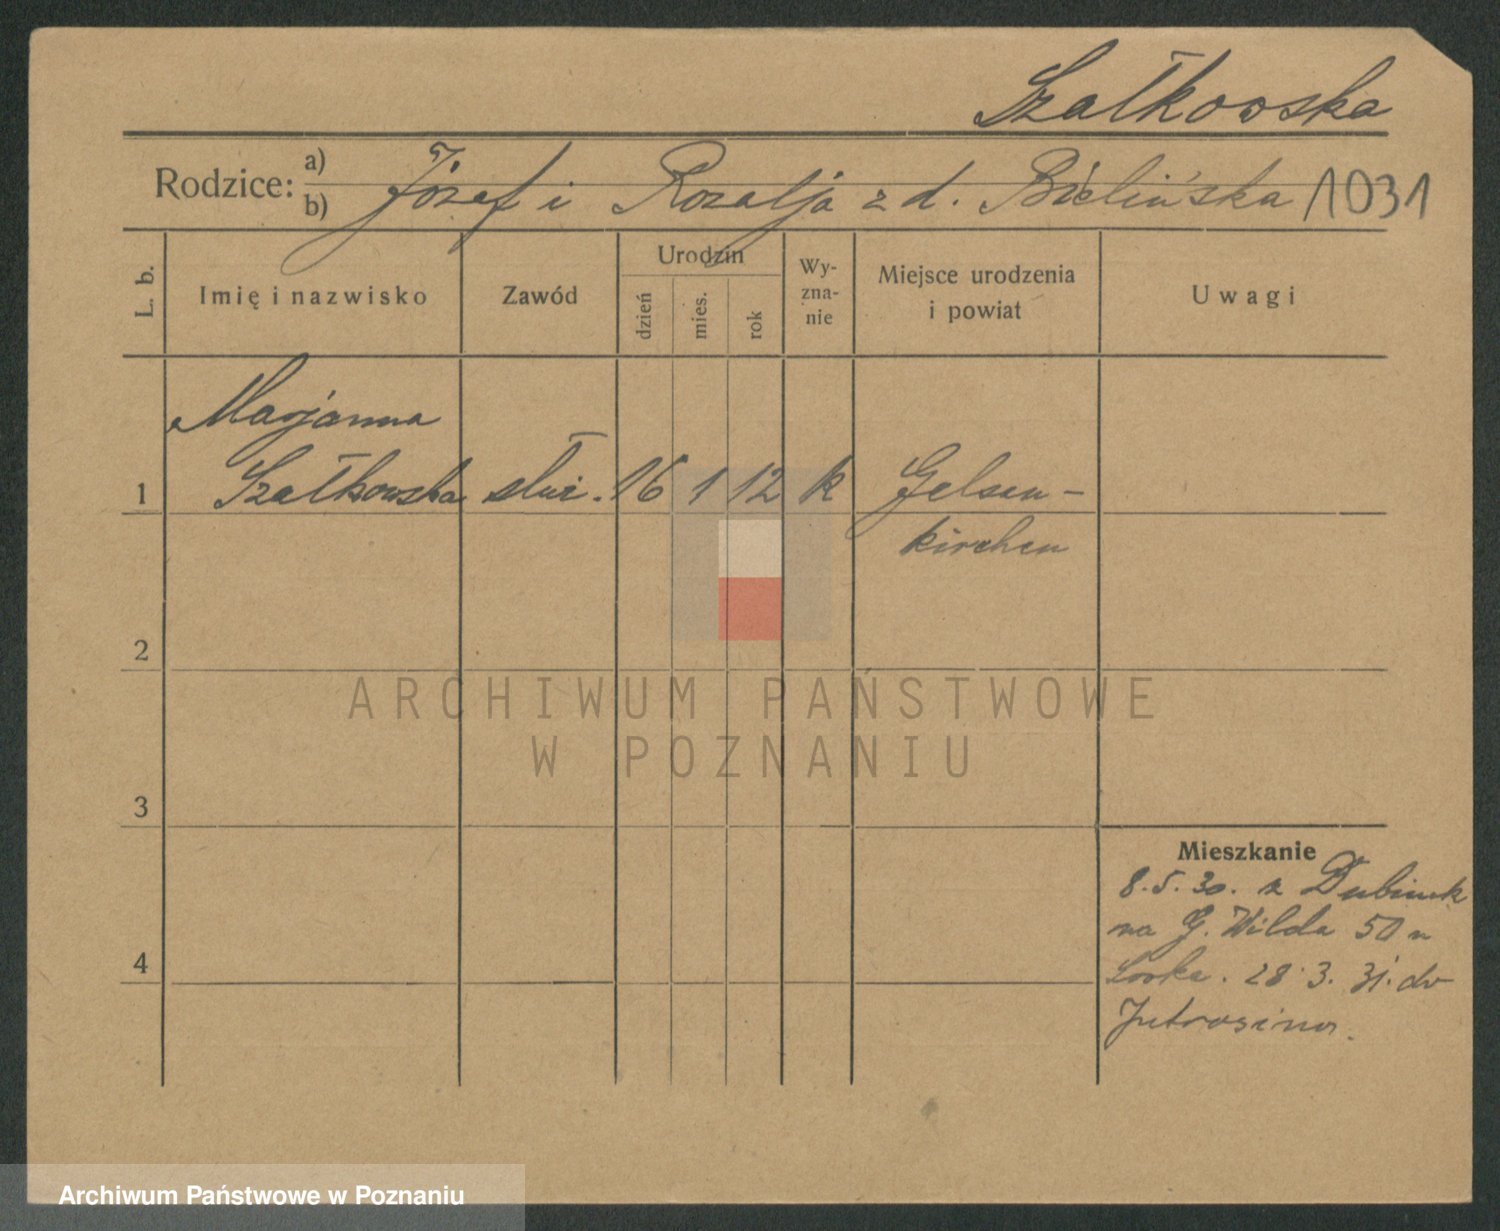 Szałkowska
Rodzice: a)
b)
Józef i Rozalja z d. Bielińska 1031
L. b.
Imię i nazwisko
Zawód
Urodzin
dzień
mies.
rok
Wy-
zna-
nie
Miejsce urodzenia
i powiat
Uwagi
Marjanna
1 Szałkowska służ. 16 1 12 k Gelsen-
kirchen
2
ARCHIWUM PAŃSTWOWE
W POZNANIU
3
Mieszkanie
8.5.30. z
na G. Wilda 50 u
28.3.31. do
4
Jutrosina.
Archiwum Państwowe w Poznaniu